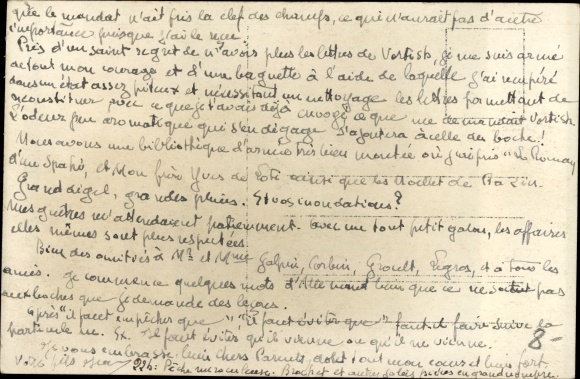 que le mandat n'ait pris la clef des champs, ce qui n'aurait pas d'autre
importance puisque j'ai le reçu.
Pris d'un saint regret de n'avoir plus les lettres de Vortisch, je me suis armé
de tout mon courage et d'une baguette à l'aide de laquelle j'ai recupéré
dans un état assez piteux et nécessitant un nettoyage les lettres permettant de
reconstituer avec ce que je t'avais déjà envoyé ce que me demandait Vortisch.
L'odeur peu aromatique qui s'en dégage s'ajoutera à celle des boches!
Nous avons une bibliothèque d'armée très bien montée où j'ai pris "Le Roman
d'un Spahi, et Mon frère Yves de Loti ainsi que les Oberlé de Bazin.
Grand dégel, grandes pluies. Et vos inondations?
Mes guêtres m'attendaient patiemment. Avec un tout petit galon, les affaires
elles mêmes sont plus respectées.
Bien des amitiés à Mr et Mme Galpin, Corbin, Groult, Legros, et à tous les
amis. Je commence quelques mots d'Allemand bien que ce ne soit pas
aux boches que je demande des leçons.
Après "il faut empêcher que" "il faut éviter que" faut-il faire suivre la
particule ne. Ex. Il faut éviter qu'il vienne ou qu'il ne vienne.
8-
Je vous embrasse bien chers Parents, de tout mon cœur et bien fort.
Votre fils
Pêche miraculeuse. Brochet et autres poissons en grand nombre.